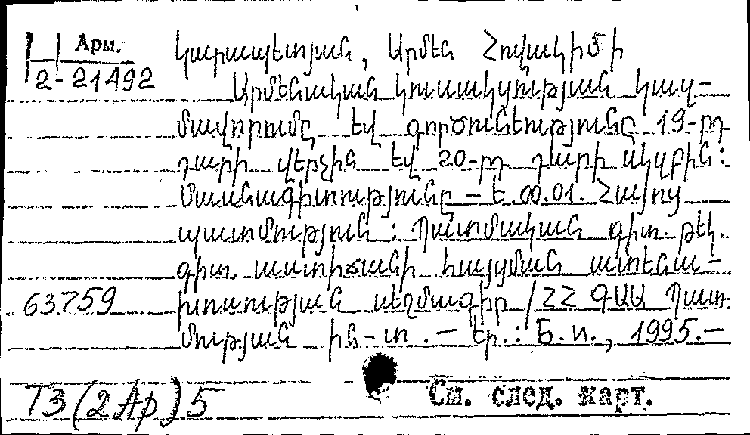 Арм.
2-21492
Կարապետյան, Արմեն Հովակիմի
Արմենական կուսակցության կազ-
մավորումը եվ գործունեությունը 19-րդ
դարի վերջին եվ 20-րդ դարի սկզբին:
Մասնագիտությունը – Է.00.01. Հայոց
պատմություն: Պատմական գիտ. թեկ.
գիտ. աստիճանի հայցման ատենա-
63.759 խոսության սեղմագիր / ՀՀ ԳԱԱ Պատ.
մության ին-տ. – Եր.: Б.и., 1995.–
T3(2Ар)5
См. след. карт.